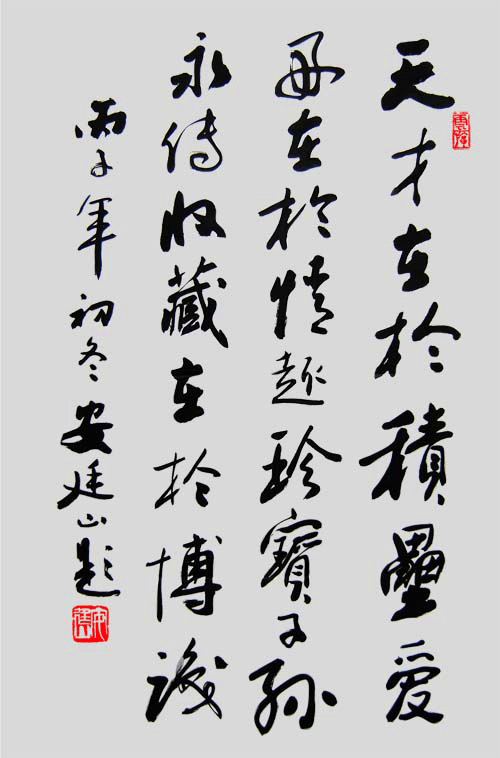 天才在於積壘愛
在於情趣珍寶子孫
永传收藏在於博識
丙子年初冬安廷山題